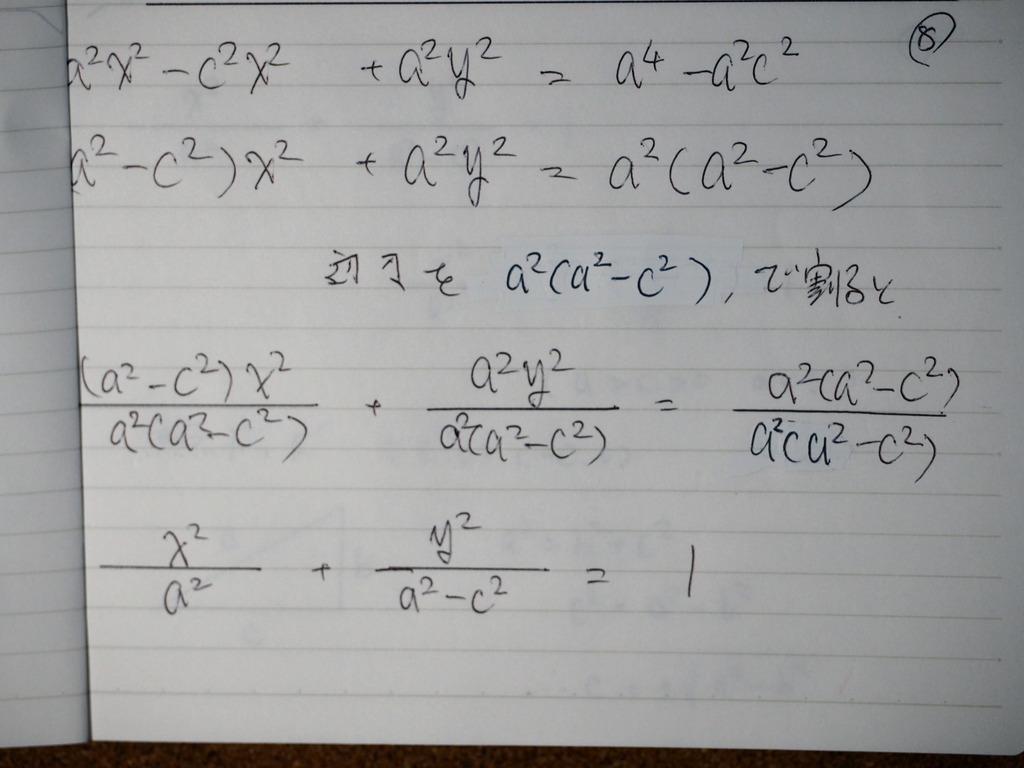 ⑧
a²x² - c²x² + a²y² = a⁴ - a²c²
a² - c²)x² + a²y² = a²(a² - c²)
辺々を a²(a² - c²), で割ると
(a² - c²)x² / a²(a² - c²) + a²y² / a²(a² - c²) = a²(a² - c²) / a²(a² - c²)
x² / a² + y² / a² - c² = 1